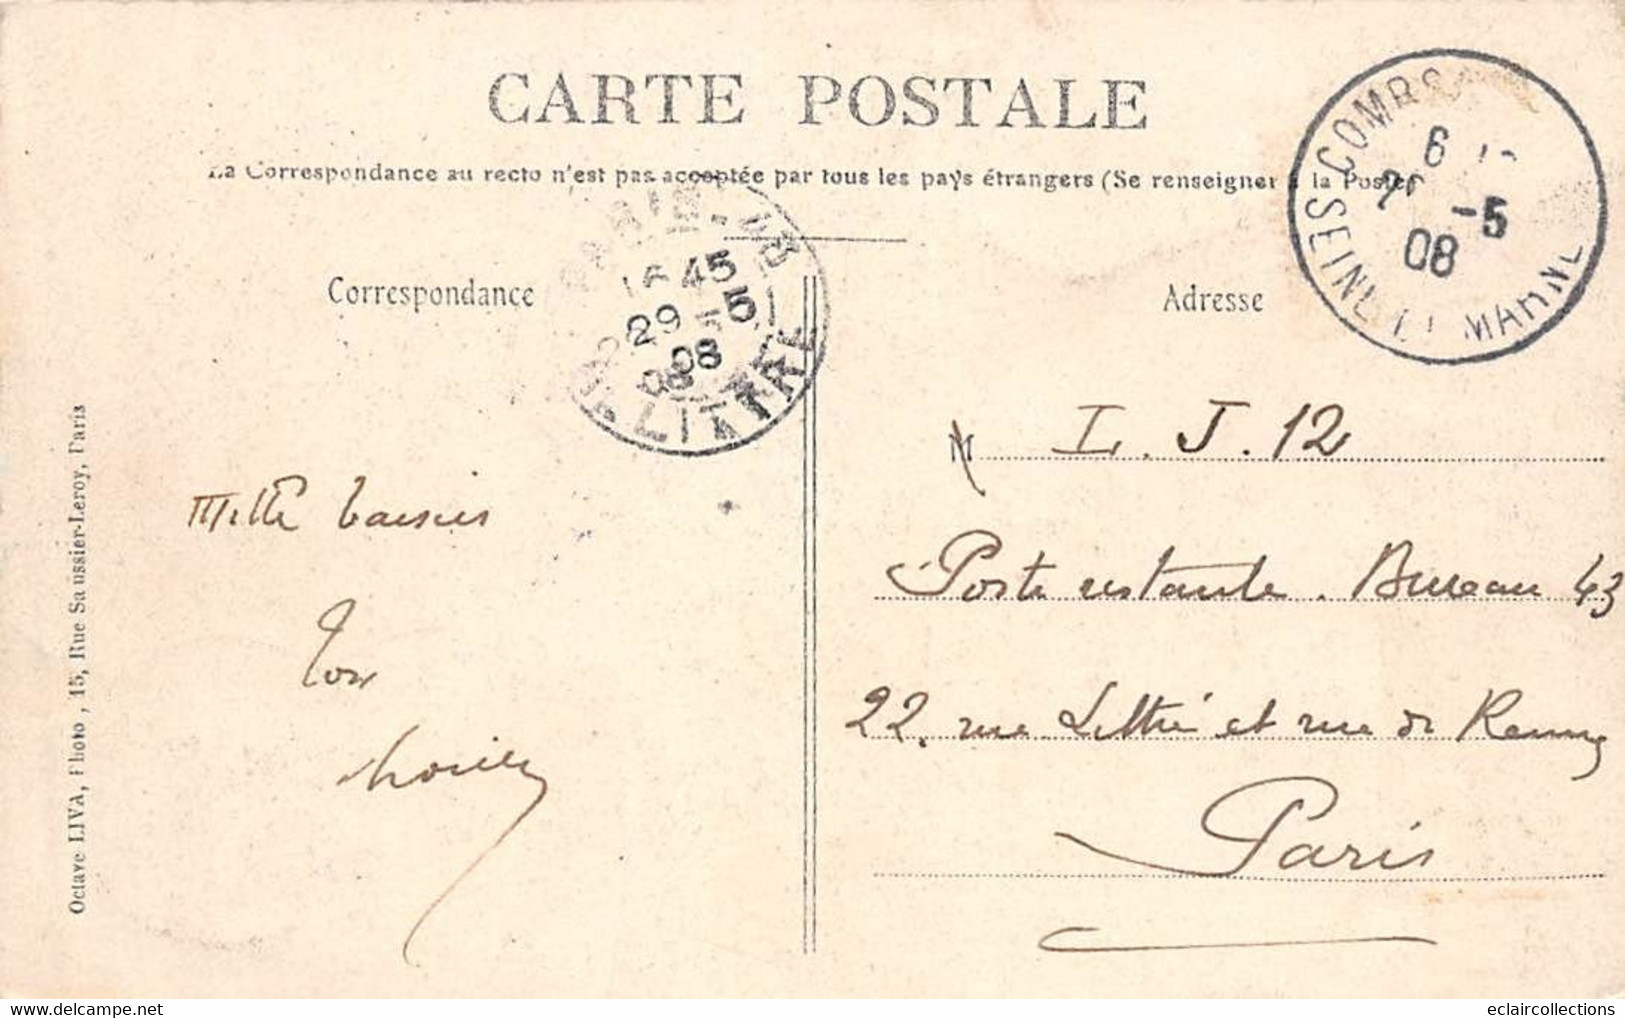 CARTE POSTALE
La Correspondance au recto n'est pas acceptée par tous les pays étrangers (Se renseigner à la Poste)
COMBS
6
-5
08
SEINE ET MARNE
45
29 5
08
R. LITTRÉ
Correspondance
Adresse
Mille baisers
Ton
M L. J. 12
Poste restante. Bureau 43
22, rue Littré et rue de Rennes
Paris
Octave LIVA, Photo, 15, Rue Saussier-Leroy, Paris
www.delcampe.net
eclaircollections